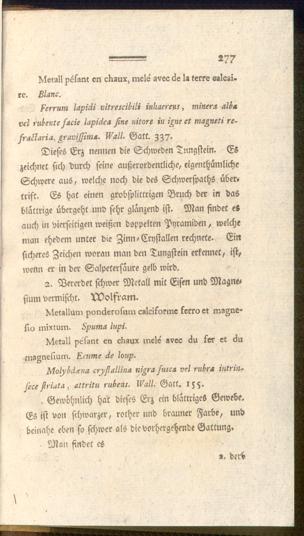 277
Metall pésant en chaux, melé avec de la terre calcai-
re. Blanc.
Ferrum lapidi vitrescibili inhaereus, minera alba
vel rubente facie lapidea sine nitore in igne et magneti re-
fractaria. gravissima. Wall. Gatt. 337.
Dieses Erz nennen die Schweden Tungstein. Es
zeichnet sich durch seine außerordentliche, eigenthümliche
Schwere aus, welche noch die des Schwerspaths über-
trift. Es hat einen grobsplittrigen Bruch der in das
blättrige übergeht und sehr glänzend ist. Man findet es
auch in vierseitigen weißen doppelten Pyramiden, welche
man ehedem unter die Zinn-Crystallen rechnete. Ein
sicheres Zeichen woran man den Tungstein erkennet, ist,
wenn er in der Salpetersäure gelb wird.
2. Vererdet schwer Metall mit Eisen und Magne-
sium vermischt. Wolfram.
Metallum ponderosum calciforme ferro et magne-
sio mixtum. Spuma lupi.
Metall pésant en chaux melé avec du fer et du
magnesium. Ecume de loup.
Molybdæna crystallina nigra fusca vel rubra intrin-
sece striata, attritu rubens. Wall. Gatt. 155.
Gewöhnlich hat dieses Erz ein blättriges Gewebe.
Es ist von schwarzer, rother und brauner Farbe, und
beinahe eben so schwer als die vorhergehende Gattung.
Man findet es
2. derb